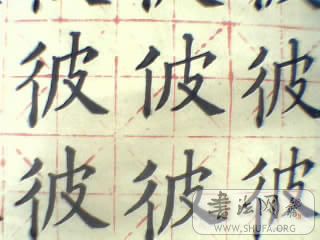 彼 彼 彼
彼 彼 彼
書法网
WWW.SHUFA.ORG